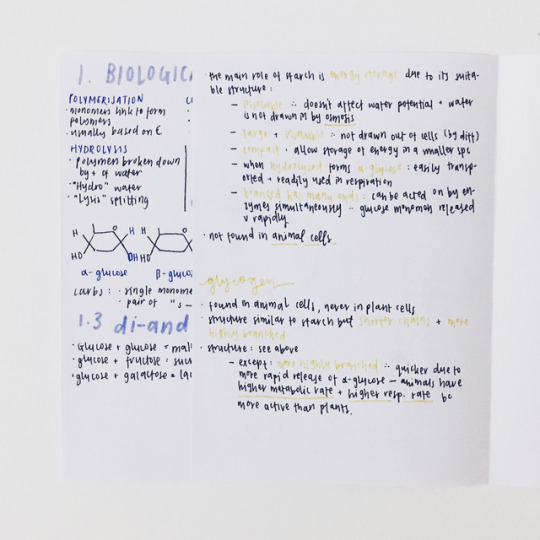 1. BIOLOGICA
POLYMERISATION
· monomers link to form
polymers
· usually based on C
HYDROLYSIS
· polymers broken down
by + of water
· "Hydro" water
· "Lysis" splitting
H O H H O
HO OH HO
α-glucose β-gluco
carbs: · single monome
· pair of "s –
1.3 di-and
· Glucose + glucose = mal
· glucose + fructose = suc
· glucose + galactose = lac
· the main role of starch is energy storage due to its suita-
ble structure:
– insoluble ∴ doesn't affect water potential + water
is not drawn in by osmosis
– large + insoluble ∴ not drawn out of cells (by diff)
– compact · allow storage of energy in a smaller spc
– when hydrolysed forms α-glucose : easily transp-
orted + readily used in respiration
– branced has many ends : can be acted on by en-
zymes simultaneously ∴ glucose monomers released
v rapidly
· not found in animal cells.
glycogen
· found in animal cells, never in plant cells
· structure similar to starch but shorter chains + more
highly branched
· structure: see above
– except: more highly branched ∴ quicker due to
more rapid release of α-glucose – animals have
higher metabolic rate + higher resp. rate bc
more active than plants.